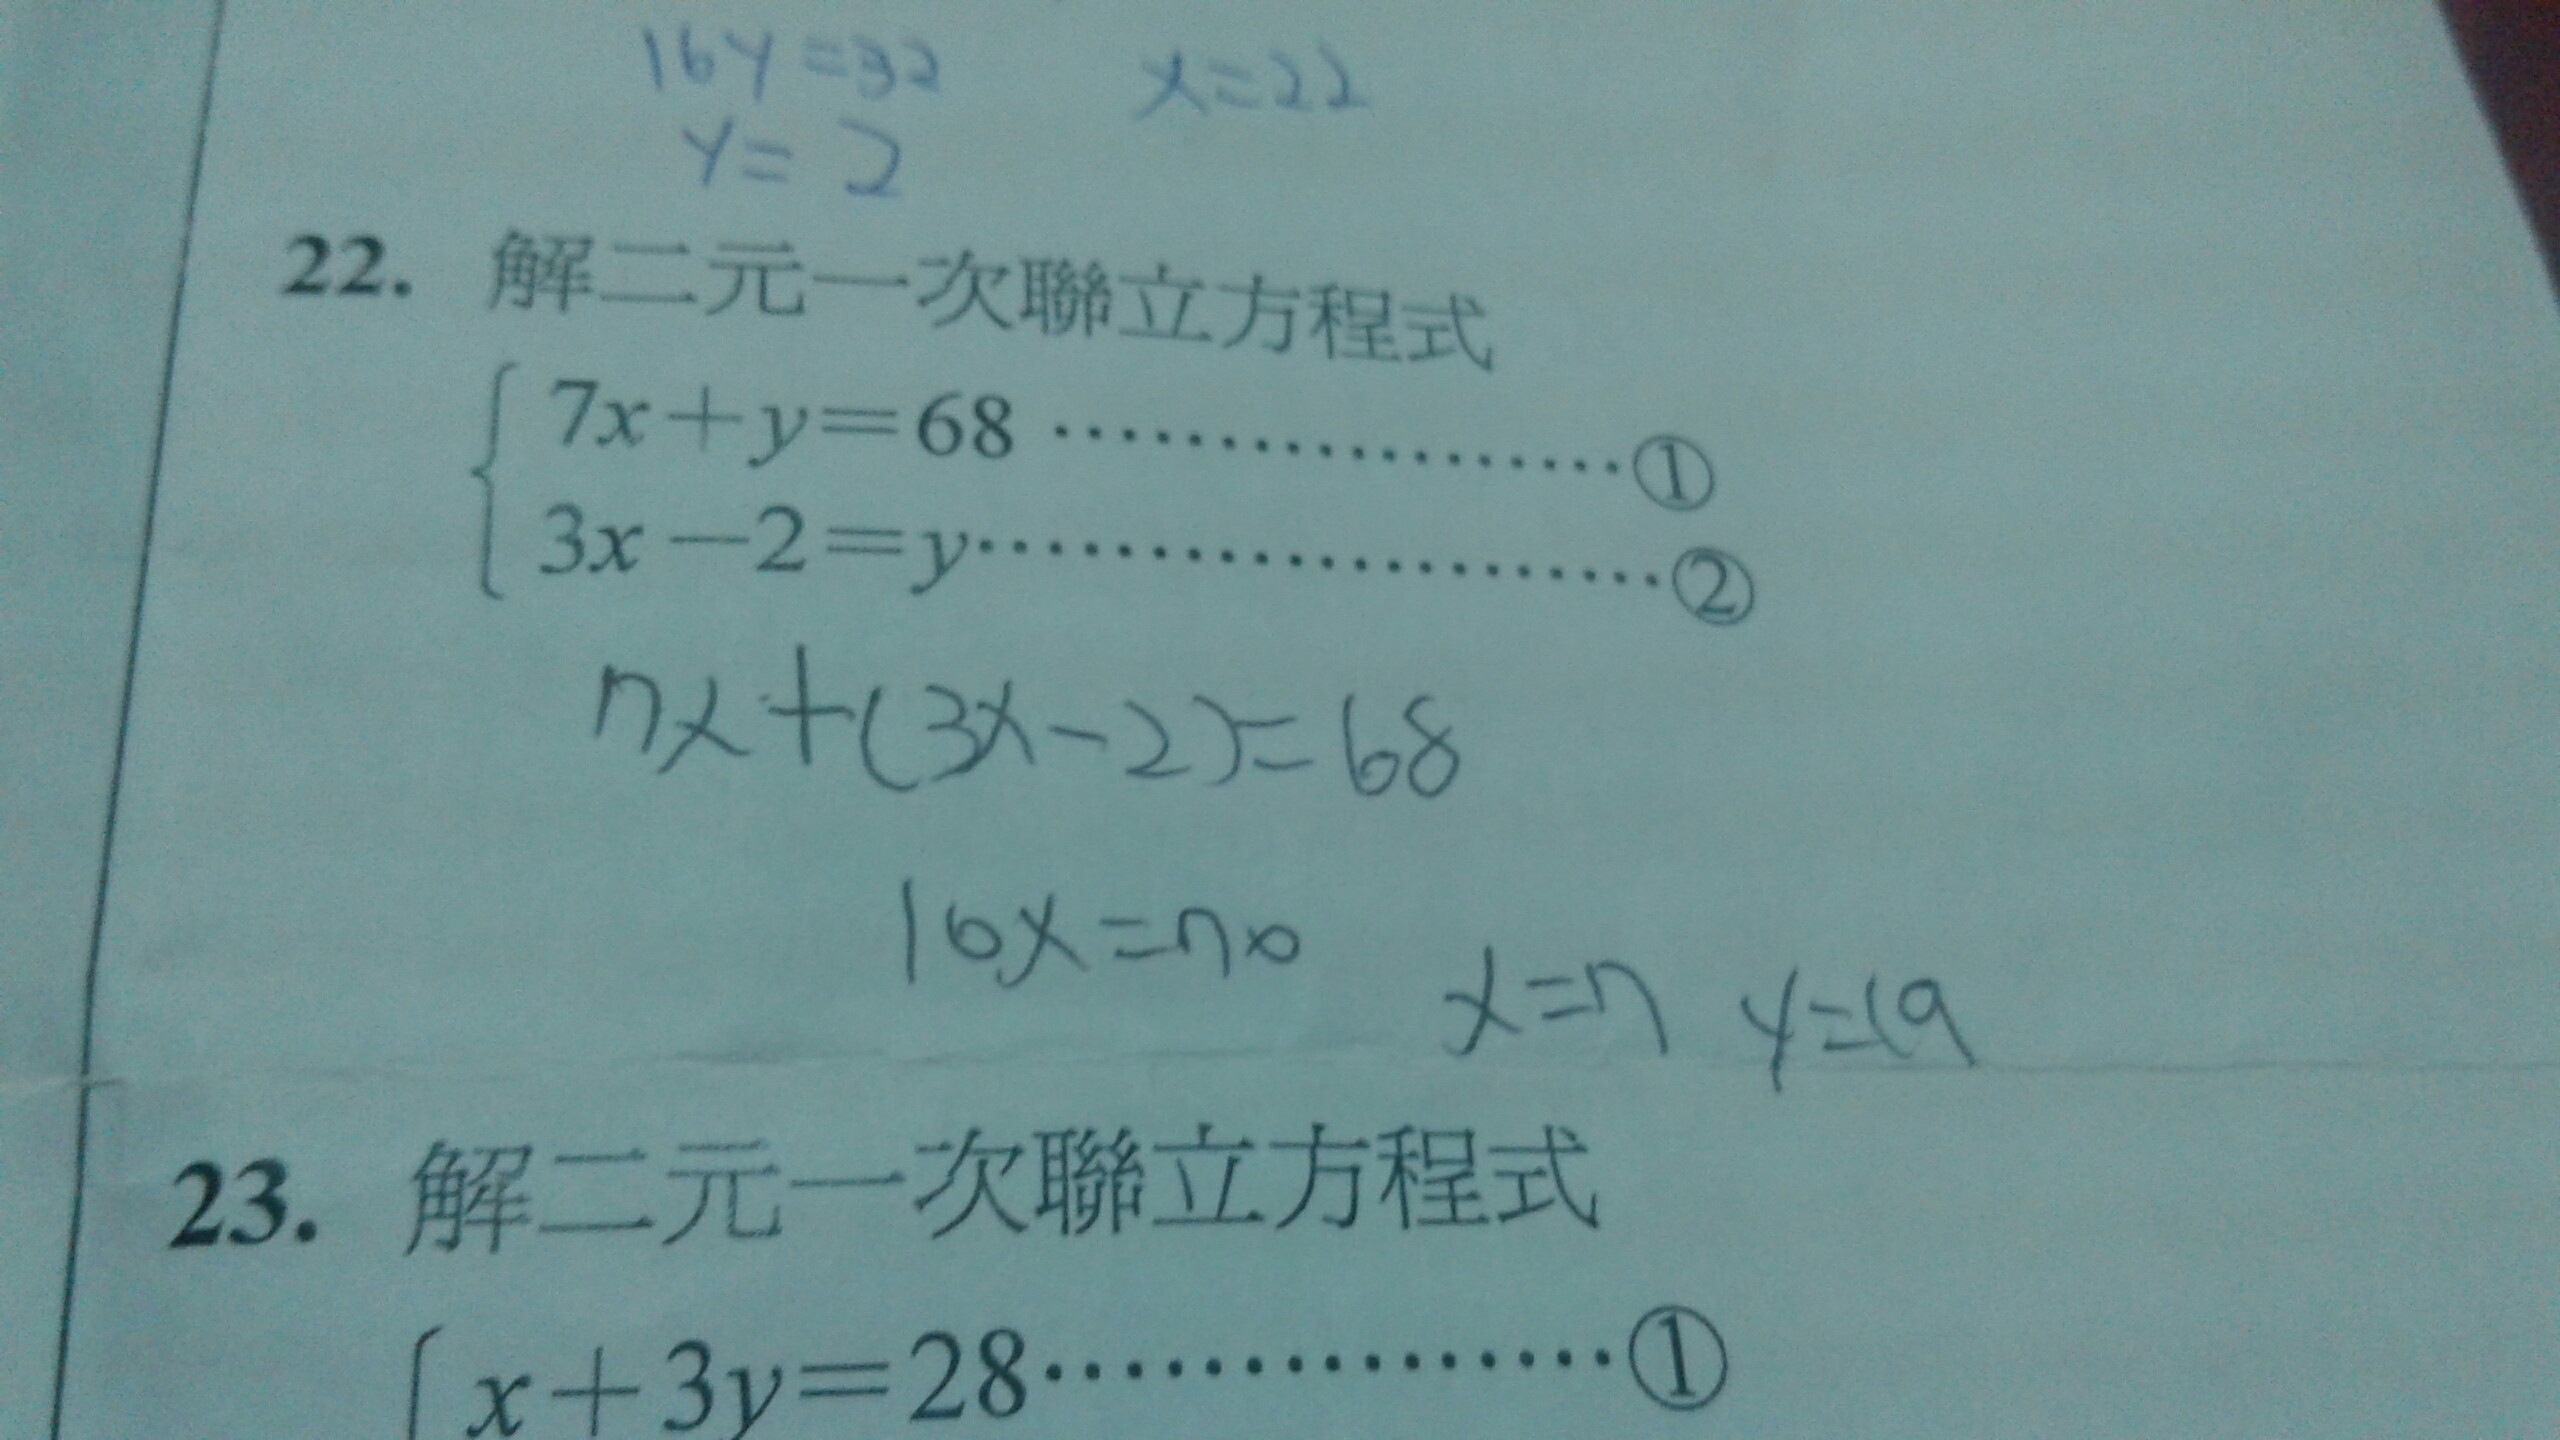 16y=32 x=22
y=2
22. 解二元一次聯立方程式
7x+y=68 ………………①
3x-2=y…………………②
7x+(3x-2)=68
10x=70
x=7 y=19
23. 解二元一次聯立方程式
x+3y=28………………①